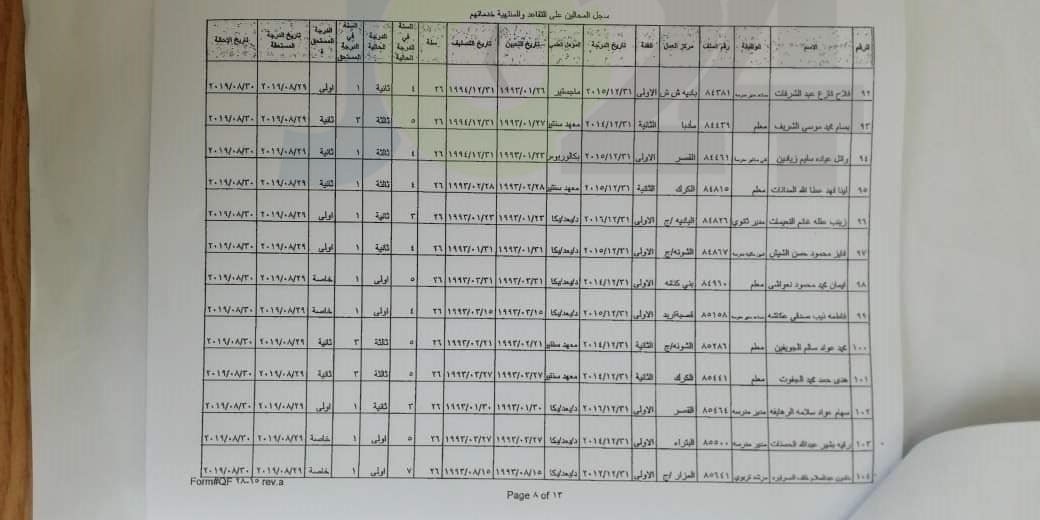 سجل المحالين على التقاعد والمنتهية خدماتهم
الرقم الاسم الوظيفة رقم الملف مركز العمل الفئة تاريخ الدرجة المؤهل العلمي تاريخ التعيين تاريخ التصنيف سنة السنة في الدرجة الحالية الدرجة الحالية السنة في الدرجة المستحق الدرجة المستحق تاريخ الدرجة المستحقة تاريخ الإحالة
٩٢ فلاح كازع عبد الشرفات ٨٤٣٨١ باديه ش ش الاولى ٢٠١٥/١٢/٣١ ماجستير ١٩٩٣/٠١/٢٦ ١٩٩٤/١٢/٣١ ٢٦ ٤ ثانية ١ اولى ٢٠١٩/٠٨/٢٩ ٢٠١٩/٠٨/٣٠
٩٣ بسام محمد موسى الشريف معلم ٨٤٤٣٩ مادبا الثانية ٢٠١٤/١٢/٣١ معهد سنتين ١٩٩٣/٠١/٢٧ ١٩٩٤/١٢/٣١ ٢٦ ٥ ثالثة ٣ ثانية ٢٠١٩/٠٨/٢٩ ٢٠١٩/٠٨/٣٠
٩٤ وائل عباده سليم زيادين ٨٤٤٦١ القصر الاولى ٢٠١٥/١٢/٣١ بكالوريوس ١٩٩٣/٠١/٢٣ ١٩٩٤/١٢/٣١ ٢٦ ٤ ثالثة ١ ثانية ٢٠١٩/٠٨/٢٩ ٢٠١٩/٠٨/٣٠
٩٥ لينا فهد عطا الله المدانات معلم ٨٤٨١٥ الكرك الثانية ٢٠١٥/١٢/٣١ معهد سنتين ١٩٩٣/٠٢/٢٨ ١٩٩٣/٠٢/٢٨ ٢٦ ٤ ثالثة ١ ثانية ٢٠١٩/٠٨/٢٩ ٢٠١٩/٠٨/٣٠
٩٦ زينب عطله غانم النعيمات مدير ثانوي ٨٤٨٢٦ الباديه /ج الاولى ٢٠١٦/١٢/٣١ ١٩٩٣/٠١/٢٣ ١٩٩٣/٠١/٢٣ ٢٦ ٣ ثانية ١ اولى ٢٠١٩/٠٨/٢٩ ٢٠١٩/٠٨/٣٠
٩٧ فايز محمود حسن الشيش ٨٤٨٦٧ الشونه/ج الاولى ٢٠١٥/١٢/٣١ ١٩٩٣/٠١/٣١ ١٩٩٣/٠١/٣١ ٢٦ ٤ ثانية ١ اولى ٢٠١٩/٠٨/٢٩ ٢٠١٩/٠٨/٣٠
٩٨ ايمان محمد محمود نعواشي معلم ٨٤٩٦٠ بني كنانه الاولى ٢٠١٤/١٢/٣١ ١٩٩٣/٠٣/٣١ ١٩٩٣/٠٣/٣١ ٢٦ ٥ اولى ١ خاصة ٢٠١٩/٠٨/٢٩ ٢٠١٩/٠٨/٣٠
٩٩ فاطمه ذيب صدقي عكاشه ٨٥١٥٨ قصبةاربد الاولى ٢٠١٥/١٢/٣١ ١٩٩٣/٠٣/١٥ ١٩٩٣/٠٣/١٥ ٢٦ ٤ اولى ١ خاصة ٢٠١٩/٠٨/٢٩ ٢٠١٩/٠٨/٣٠
١٠٠ محمد عواد سالم الجويفين معلم ٨٥٢٨٦ الشونه/ج الثانية ٢٠١٤/١٢/٣١ معهد سنتين ١٩٩٣/٠٢/٢١ ١٩٩٣/٠٢/٢١ ٢٦ ٥ ثالثة ٣ ثانية ٢٠١٩/٠٨/٢٩ ٢٠١٩/٠٨/٣٠
١٠١ هدى حمد محمد الجفوت معلم ٨٥٤٤١ الكرك الثانية ٢٠١٤/١٢/٣١ معهد سنتين ١٩٩٣/٠٢/٢٧ ١٩٩٣/٠٢/٢٧ ٢٦ ٥ ثالثة ٣ ثانية ٢٠١٩/٠٨/٢٩ ٢٠١٩/٠٨/٣٠
١٠٢ سهام عواد سلامه الرهايفه مدير مدرسه ٨٥٤٦٤ القصر الاولى ٢٠١٦/١٢/٣١ ١٩٩٣/٠١/٣٠ ١٩٩٣/٠١/٣٠ ٢٦ ٣ ثانية ١ اولى ٢٠١٩/٠٨/٢٩ ٢٠١٩/٠٨/٣٠
١٠٣ رقيه بشير عبدالله الحسنات مدير مدرسه ٨٥٥٠٠ البتراء الاولى ٢٠١٤/١٢/٣١ ١٩٩٣/٠٢/٢٧ ١٩٩٣/٠٢/٢٧ ٢٦ ٥ اولى ١ خاصة ٢٠١٩/٠٨/٢٩ ٢٠١٩/٠٨/٣٠
١٠٤ مأمون عبدالسلام خلف مرشد تربوي ٨٥٦٤١ المزار /ج الاولى ٢٠١٢/١٢/٣١ ١٩٩٣/٠٨/١٥ ١٩٩٣/٠٨/١٥ ٢٦ ٧ اولى ١ خاصة ٢٠١٩/٠٨/٢٩ ٢٠١٩/٠٨/٣٠
Form#QF ٢٨-١٥ rev.a
Page ٨ of ١٣